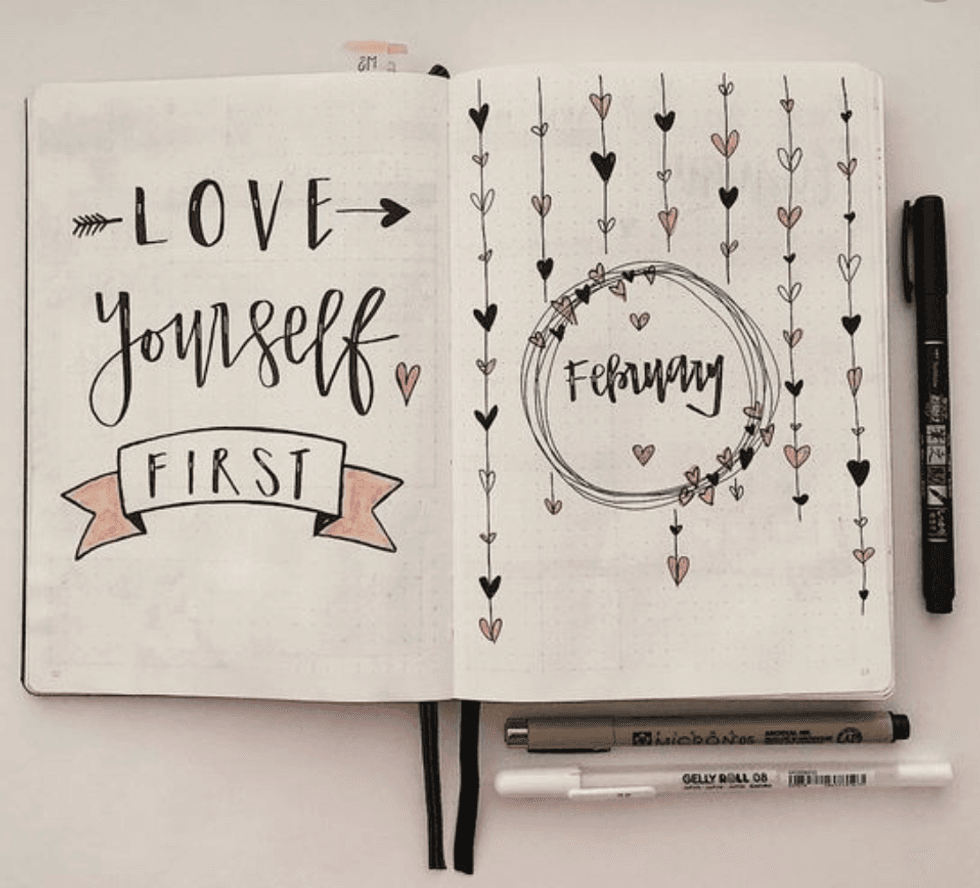 LOVE
Yourself
FIRST
February
MICRON 05
GELLY ROLL 08